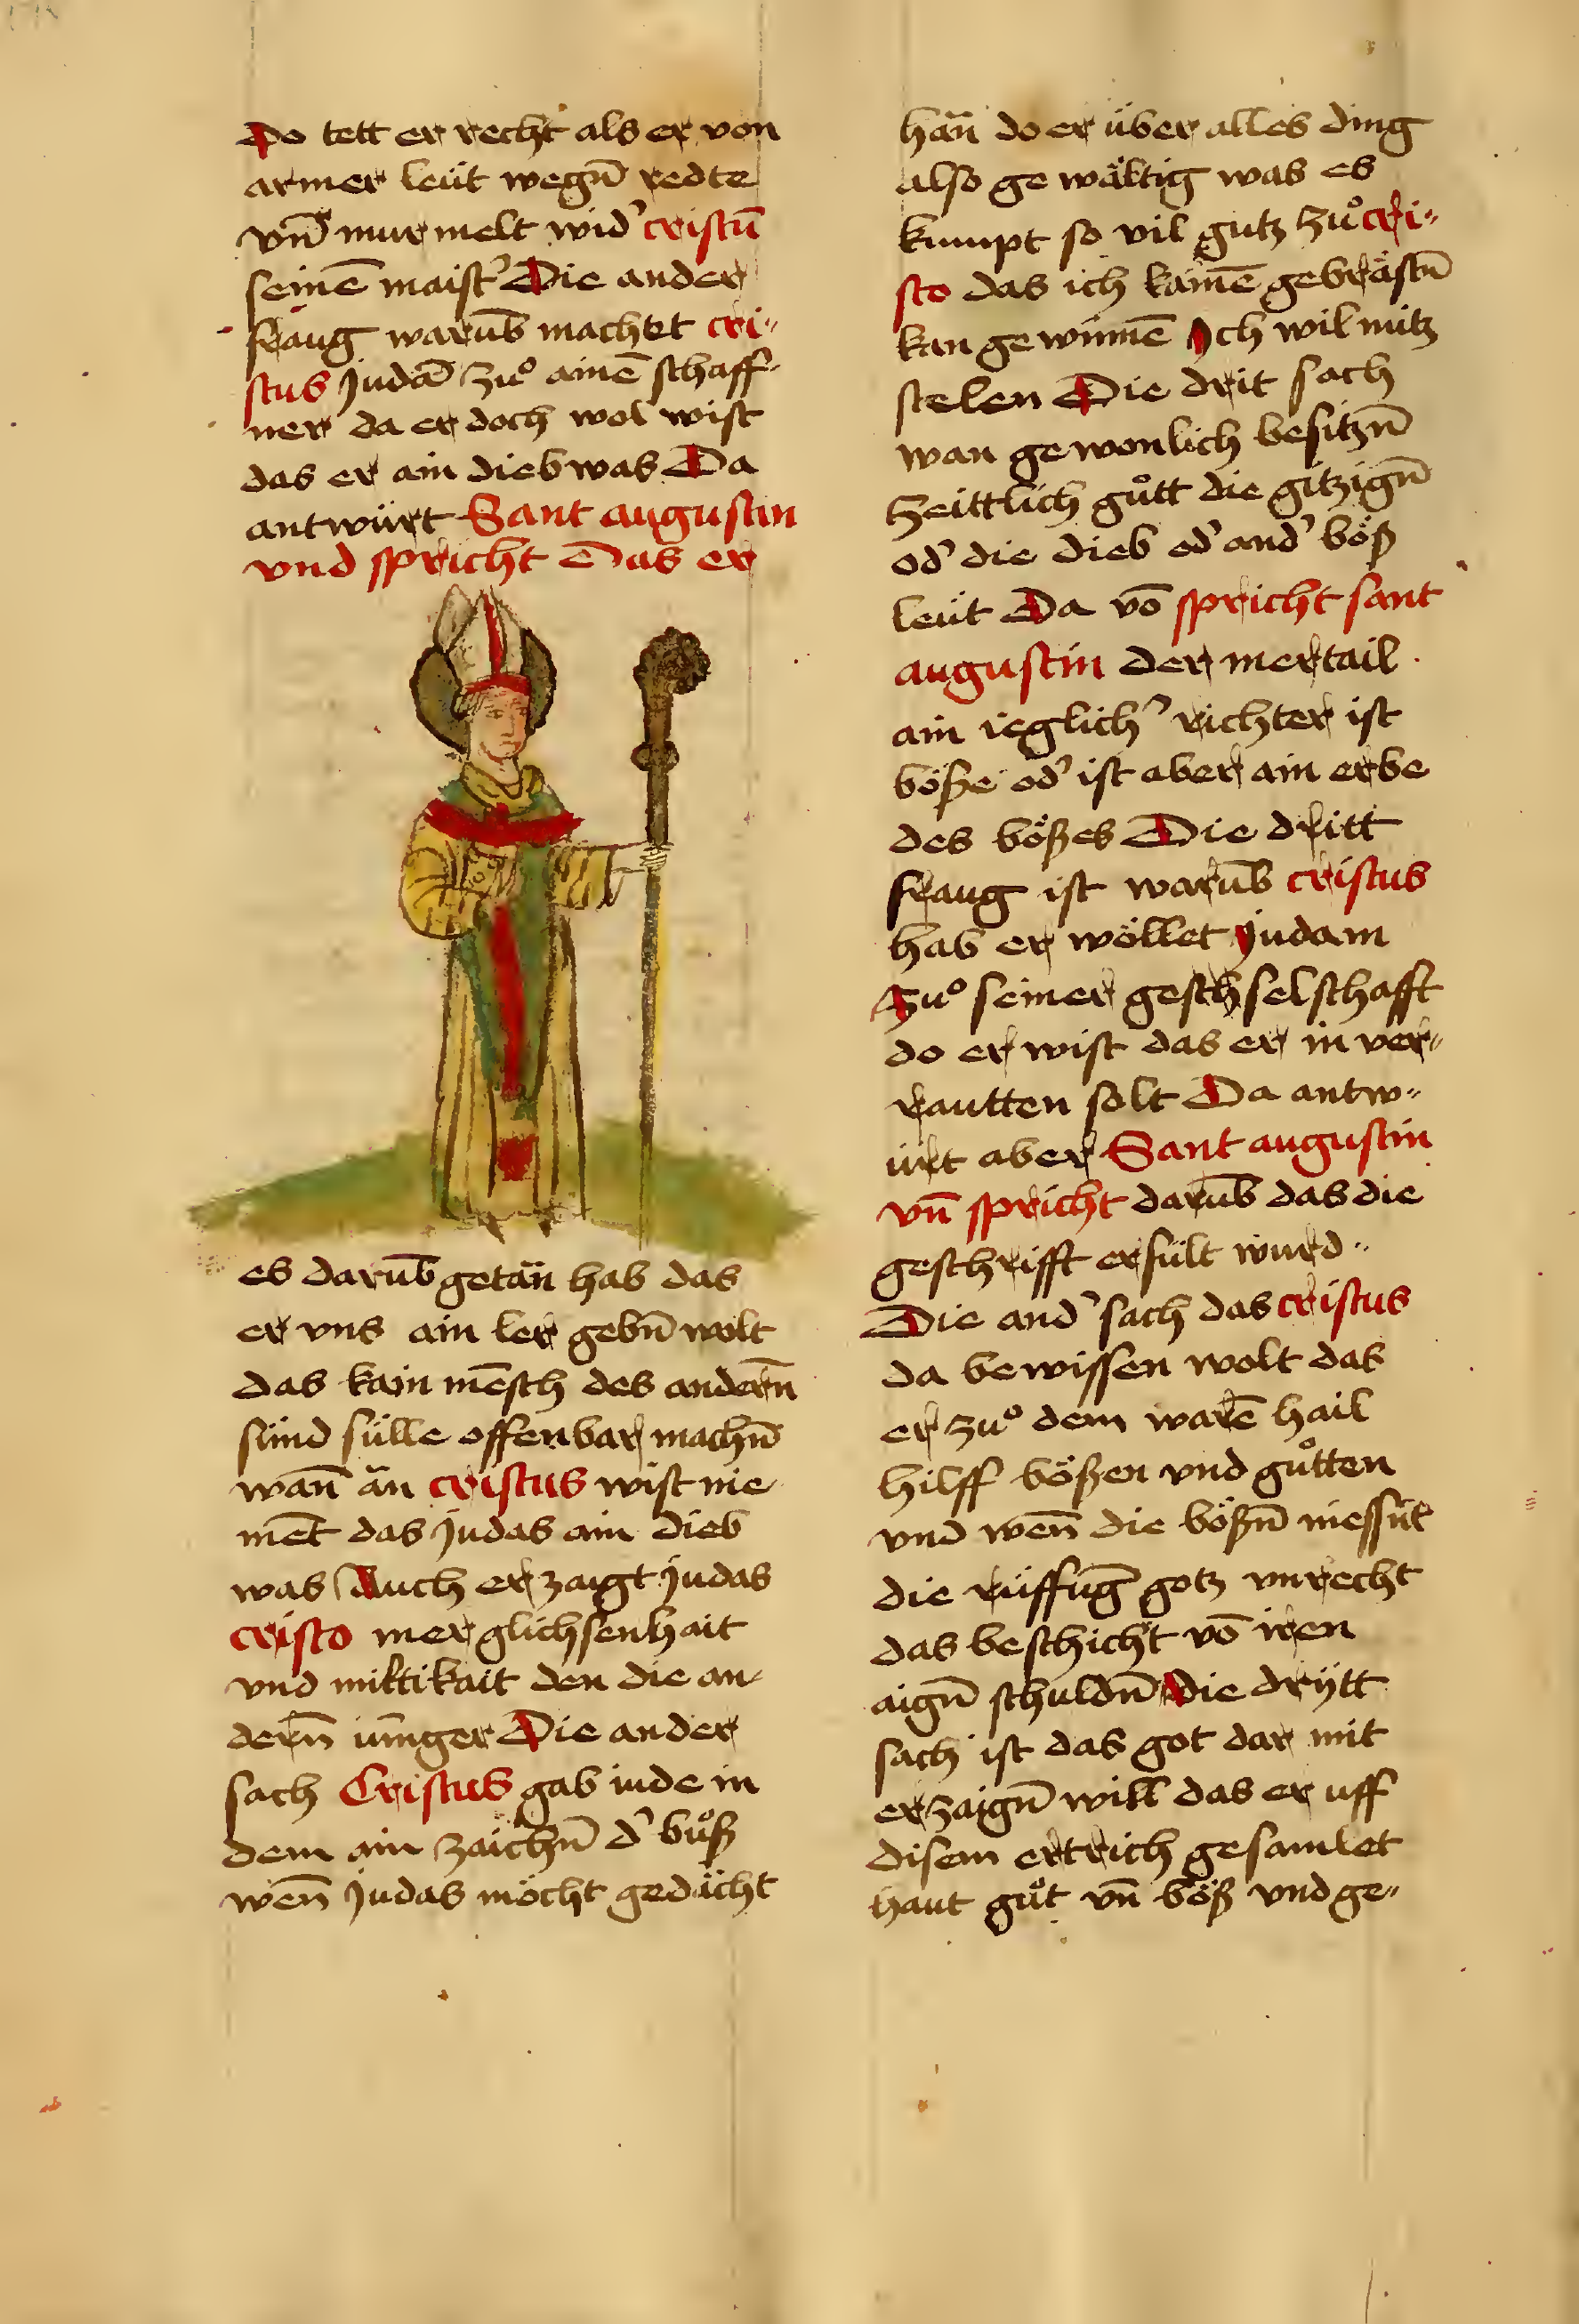 Do tett er recht als er von
armer leüt wegn̄ redte
vn̄ murmelt wid' cristū
seinē maist' Die ander
fraug warūb machtet cri-
stus judā zuͦ ainē schaff-
ner da er doch wol wist
das er ain dieb was Da
antwürt Sant augustin
vnd spricht Das er
es darūb getän hab das
er vns ain ler gebn̄ wolt
das kain mēsch des andern̄
sünd sülle offenbar machn̄
wan̄ än cristus wist nie
mēt das judas ain dieb
was Auch erzaigt judas
cristo mer glichsenhait
vnd miltikait den die an-
dern̄ iūnger Die ander
sach Cristus gab iude in
dem ain zaichn̄ d' buͦß
wen̄ judas möcht gedächt
han̄ do er über alles ding
also gewältig was es
kumpt so vil gutz zuͦ cri-
sto das ich kainē gebrästn̄
kan gewinnē Ich wil nütz
stelen Die drit sach
wan gewonlich besitzn̄
zeittlich guͦtt die gitzign̄
od' die dieb od' and' böß
leüt Da vō spricht sant
augustin der mertail
ain ieglich' richter ist
böße od' ist aber ain erbe
des bößes Die dritt
fraug ist warūb cristus
hab er wöllet judam
zuͦ seiner geschselschafft
do er wist das er in ver-
rautten solt Da antw-
ürt aber Sant augustin
vn̄ spricht darūb das die
geschrifft erfült wurd
Die and' sach das cristus
da bewissen wolt das
er zuͦ dem warē hail
hilff bößen vnd guͦtten
vnd wen̄ die bößn̄ niessūt
die rüffūg gotz vnrecht
das beschicht vō iren
aign̄ schuldn̄ Die drytt
sach ist das got dar mit
erzaign̄ will das er uff
disem ertrich gesamlet
haut guͦt vn̄ böß vnd ge-